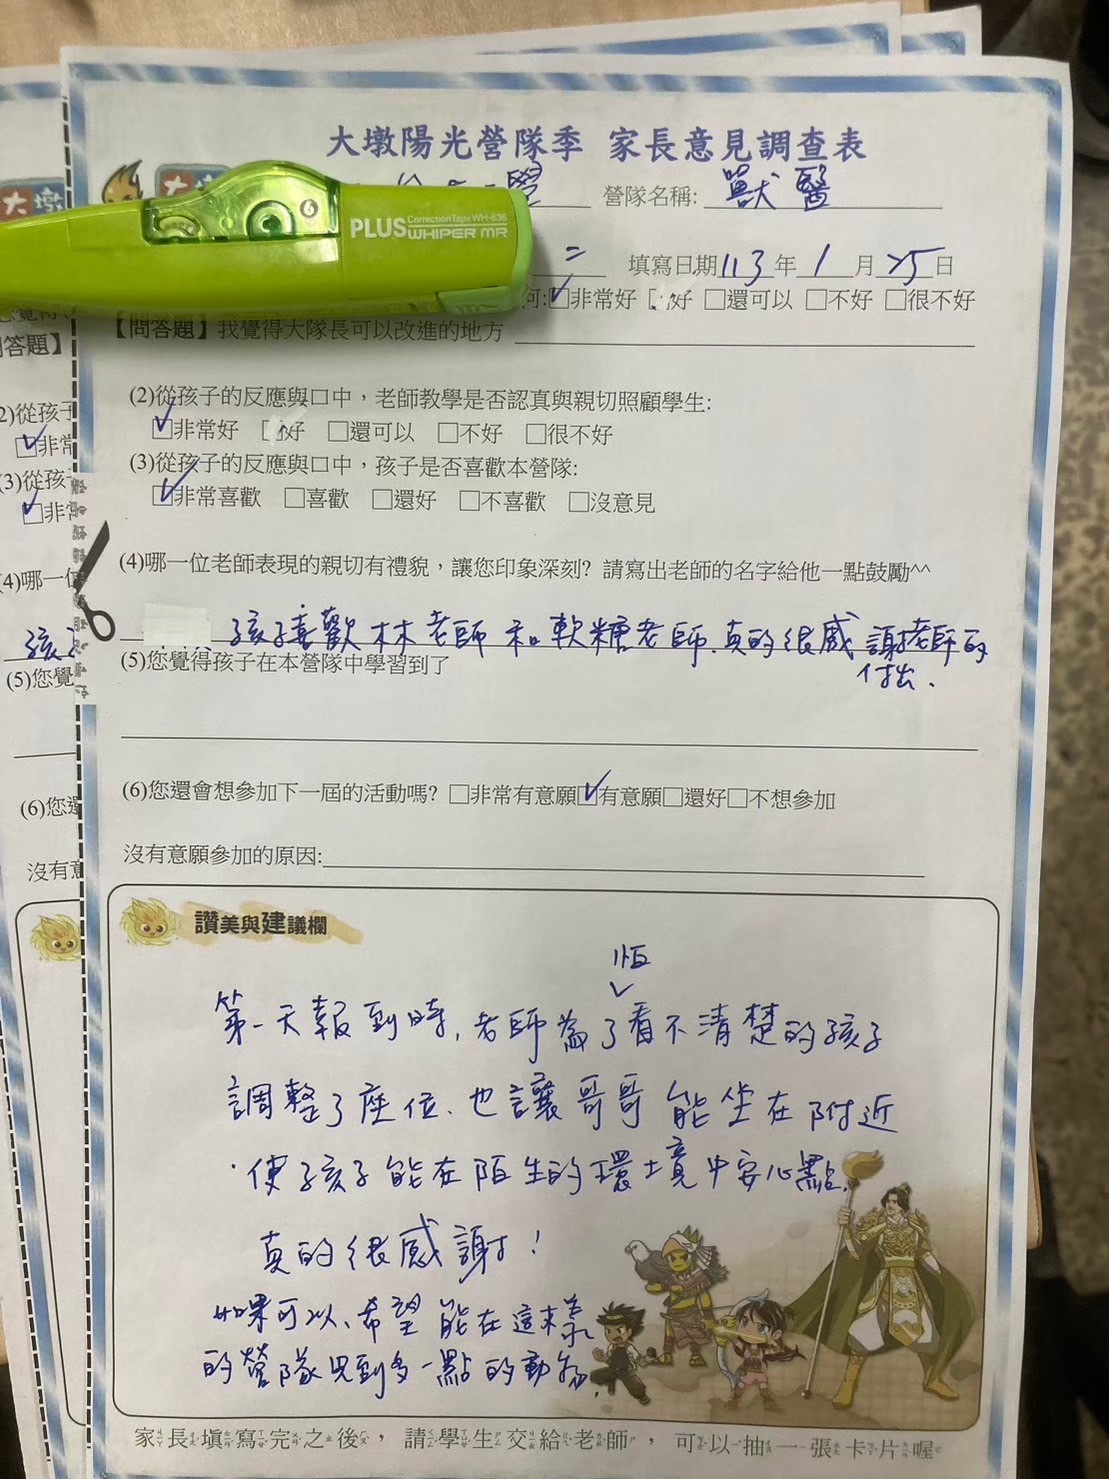 大墩陽光營隊季 家長意見調查表
營隊名稱: 獸醫
填寫日期113年1月25日
非常好 □好 □還可以 □不好 □很不好
【問答題】我覺得大隊長可以改進的地方
(2)從孩子的反應與口中，老師教學是否認真與親切照顧學生:
□非常好 □好 □還可以 □不好 □很不好
(3)從孩子的反應與口中，孩子是否喜歡本營隊:
□非常喜歡 □喜歡 □還好 □不喜歡 □沒意見
(4)哪一位老師表現的親切有禮貌，讓您印象深刻? 請寫出老師的名字給他一點鼓勵^^
孩子喜歡林老師和軟糖老師.真的很感謝老師的
付出.
(5)您覺得孩子在本營隊中學習到了
(6)您還會想參加下一屆的活動嗎? □非常有意願□有意願□還好□不想參加
沒有意願參加的原因:
讚美與建議欄
恒
第一天報到時,老師為了看不清楚的孩子
調整了座位、也讓哥哥能坐在附近
使孩子能在陌生的環境中安心點.
真的很感謝!
如果可以、希望能在這樣
的營隊見到多一點的動物.
家長填寫完之後，請學生交給老師，可以抽一張卡片喔
PLUS Correction Tape WH-636
WHIPER MR
6
大墩
答題】
2)從孩子
□非常
(3)從孩
□非常
4)哪一位
孩
(5)您覺
(6)您還
沒有意